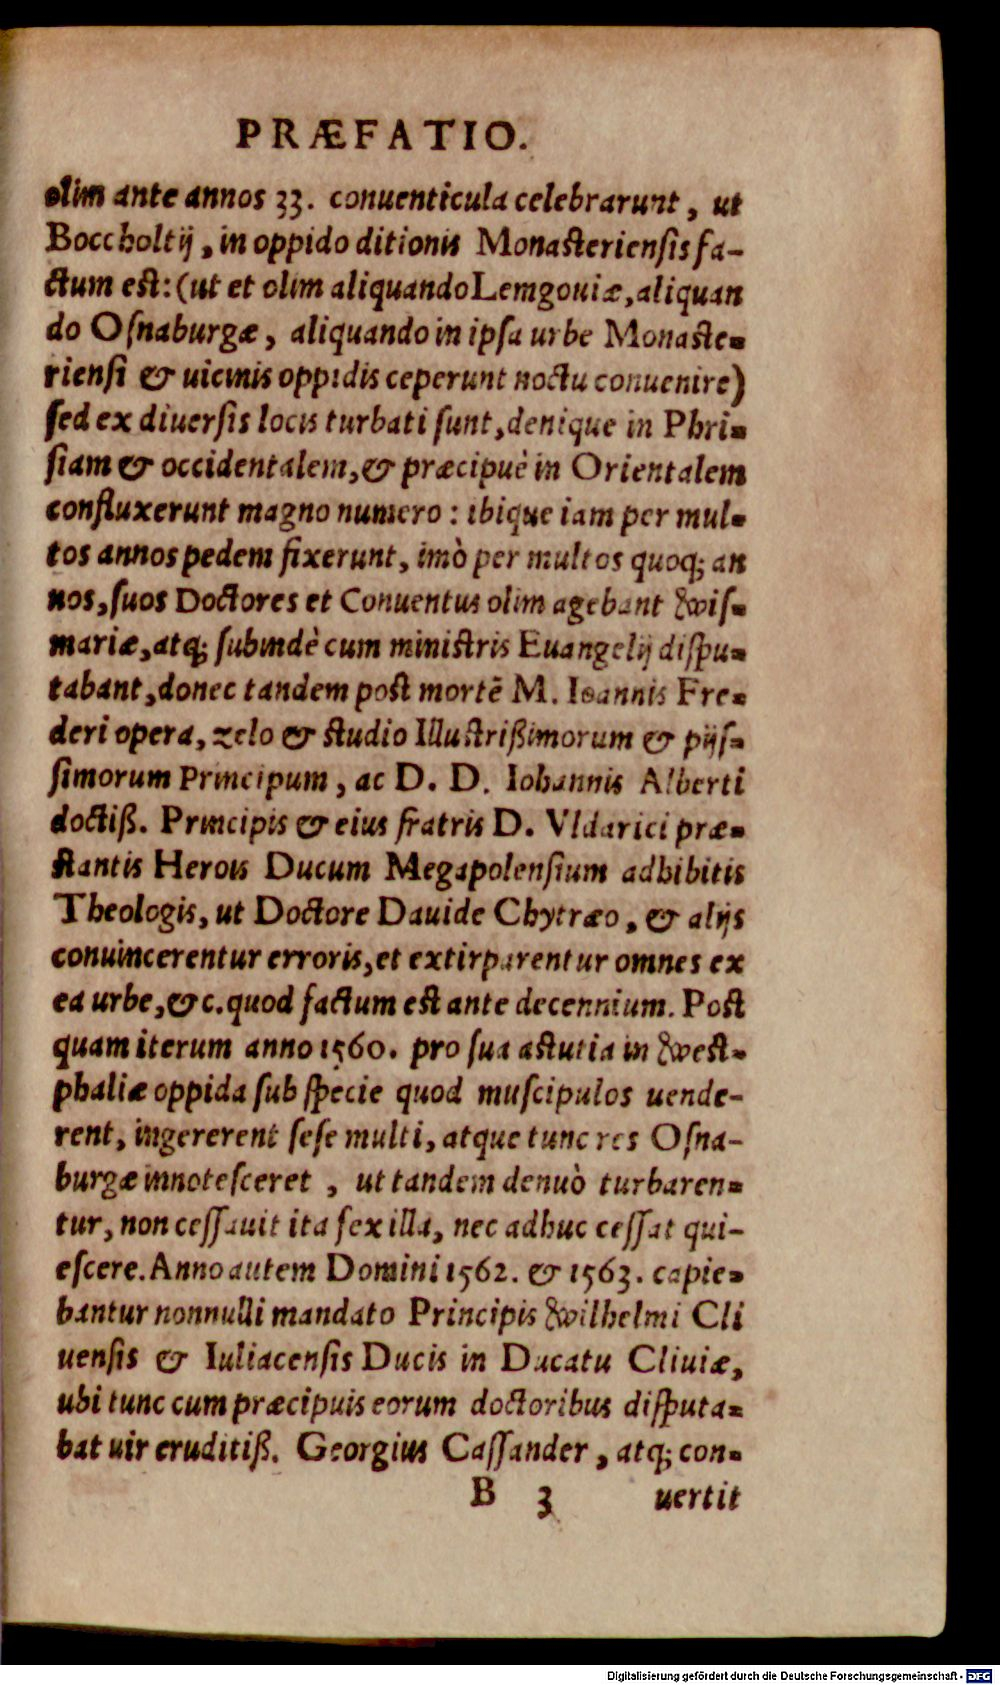 PRÆFATIO.
olim ante annos 33. conuenticula celebrarunt, ut
Boccholtij, in oppido ditionis Monasteriensis fa-
ctum est: (ut et olim aliquando Lemgouiæ, aliquan
do Osnaburgæ, aliquando in ipsa urbe Monaste-
riensi & uicinis oppidis ceperunt noctu conuenire)
sed ex diuersis locis turbati sunt, denique in Phri-
siam & occidentalem, & præcipuè in Orientalem
confluxerunt magno numero: ibique iam per mul-
tos annos pedem fixerunt, imò per multos quoq; an
nos, suos Doctores et Conuentus olim agebant Wis-
mariæ, atq; subindè cum ministris Euangelij dispu-
tabant, donec tandem post mortẽ M. Ioannis Fre-
deri opera, zelo & studio Illustrißimorum & pijs-
simorum Principum, ac D. D. Iohannis Alberti
doctiß. Principis & eius fratris D. Vldarici præ-
stantis Herois Ducum Megapolensium adhibitis
Theologis, ut Doctore Dauide Chytræo, & alijs
conuincerentur erroris, et extirparentur omnes ex
ea urbe, &c. quod factum est ante decennium. Post
quam iterum anno 1560. pro sua astutia in West-
phaliæ oppida sub specie quod muscipulos uende-
rent, ingererent sese multi, atque tunc res Osna-
burgæ innotesceret, ut tandem denuò turbaren-
tur, non cessauit ita sex illa, nec adhuc cessat qui-
escere. Anno autem Domini 1562. & 1563. capie-
bantur nonnulli mandato Principis Wilhelmi Cli
uensis & Iuliacensis Ducis in Ducatu Cliuiæ,
ubi tunc cum præcipuis eorum doctoribus disputa-
bat uir eruditiß. Georgius Cassander, atq; con-
B 3 uertit
Digitalisierung gefördert durch die Deutsche Forschungsgemeinschaft - DFG